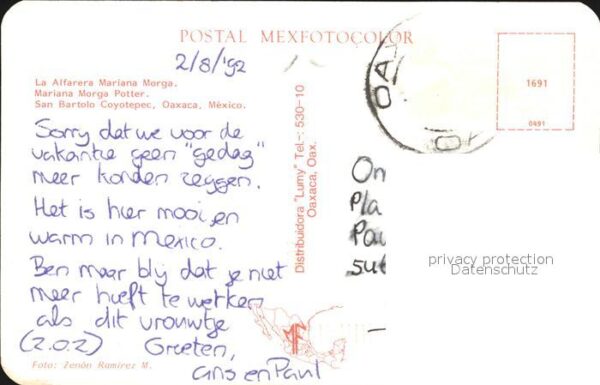 POSTAL MEXFOTOCOLOR
2/8/'92
La Alfarera Mariana Morga.
Mariana Morga Potter.
San Bartolo Coyotepec, Oaxaca, México.
Sorry dat we voor de
vakantie geen "gedag"
meer konden zeggen.
Het is hier mooi en
warm in Mexico.
Ben maar blij dat je niet
meer hoeft te werken
als dit vrouwtje
(Z.O.Z) Groeten,
Ans en Paul
Foto: Zenón Ramírez M.
Distribuidora "Lumy" Tel-: 530-10
Oaxaca, Oax.
OAX
1691
0491
On
Pla
Pau
sut
privacy protection
Datenschutz